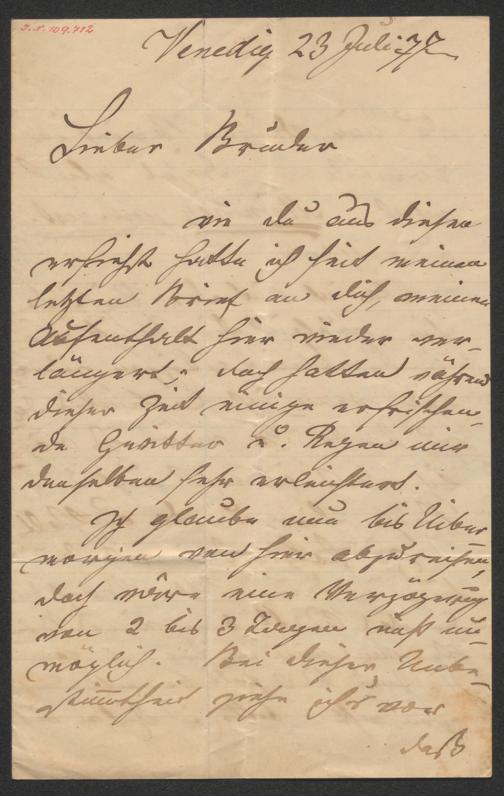 J. N. 109.712
Venedig 23 Juli 77
Lieber Bruder
wie du aus diesen
ersiehst hatte ich seit meinem
letzten Brief an dich, meinen
Aufenthalt hier wieder ver-
längert; doch hatten während
dieser Zeit einige erfrischen-
de Gewitter u. Regen mir
denselben sehr erleichtert.
Ich glaube nun bis Über-
morgen von hier abzureisen,
doch wäre eine Verzögerung
von 2 bis 3 Tagen nicht un-
möglich. Bei dieser Unbe-
stimmtheit ziehe ich's vor
daß